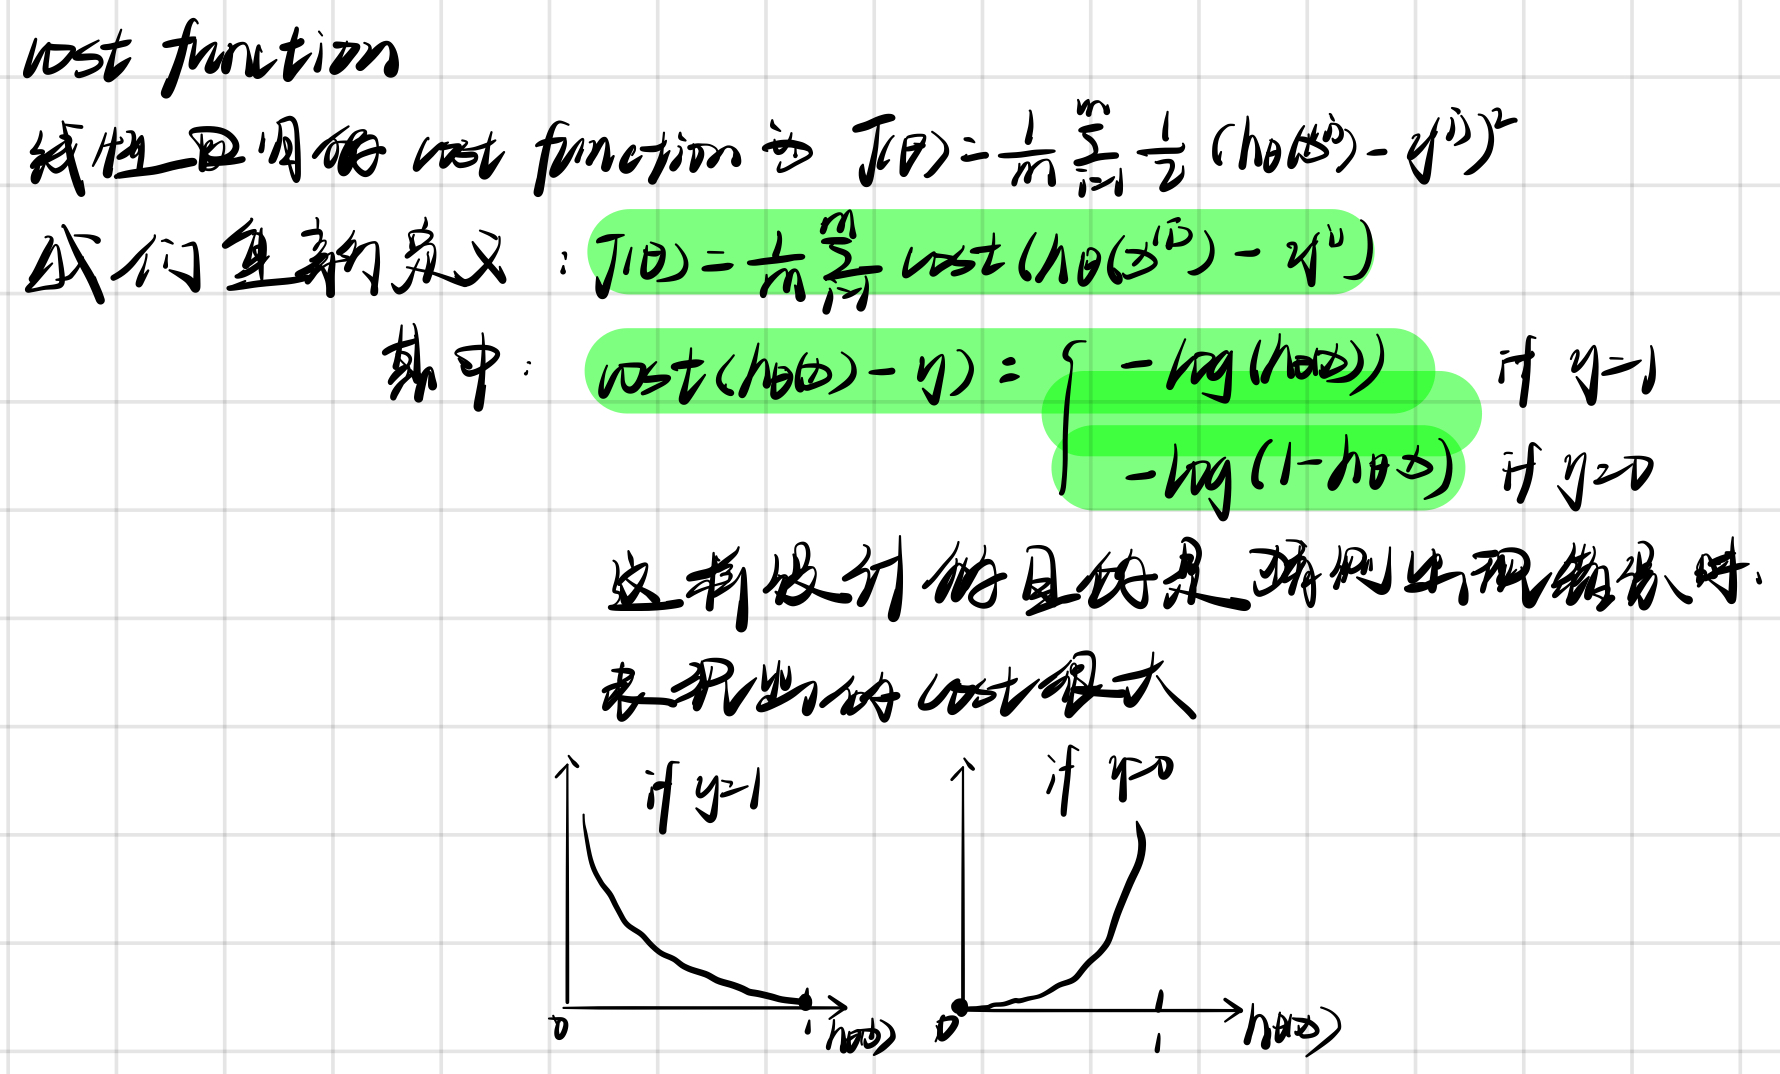 cost function
线性回归的 cost function 为 J(θ) = 1/m Σ_{i=1}^{m} 1/2 (hθ(x⁽ⁱ⁾) - y⁽ⁱ⁾)²
我们重新定义 : J(θ) = 1/m Σ_{i=1}^{m} cost (hθ(x⁽ⁱ⁾) - y⁽ⁱ⁾)
其中 : cost (hθ(x) - y) = { -log (hθ(x)) if y=1
-log (1-hθ(x)) if y=0
这样设计的目的是 预测出现错误时,
表现出的 cost 很大
if y=1 if y=0
0 1 hθ(x) 0 1 hθ(x)